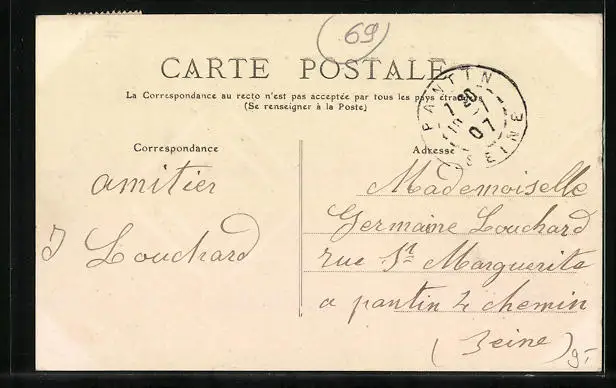 69
CARTE POSTALE
La Correspondance au recto n'est pas acceptée par tous les pays étrangers
(Se renseigner à la Poste)
PANTIN
07
SEINE
Correspondance
amitier
J Louchard
Adresse
Mademoiselle
Germaine Louchard
rue Ste Marguerite
a pantin 4 chemin
(Seine)
9-